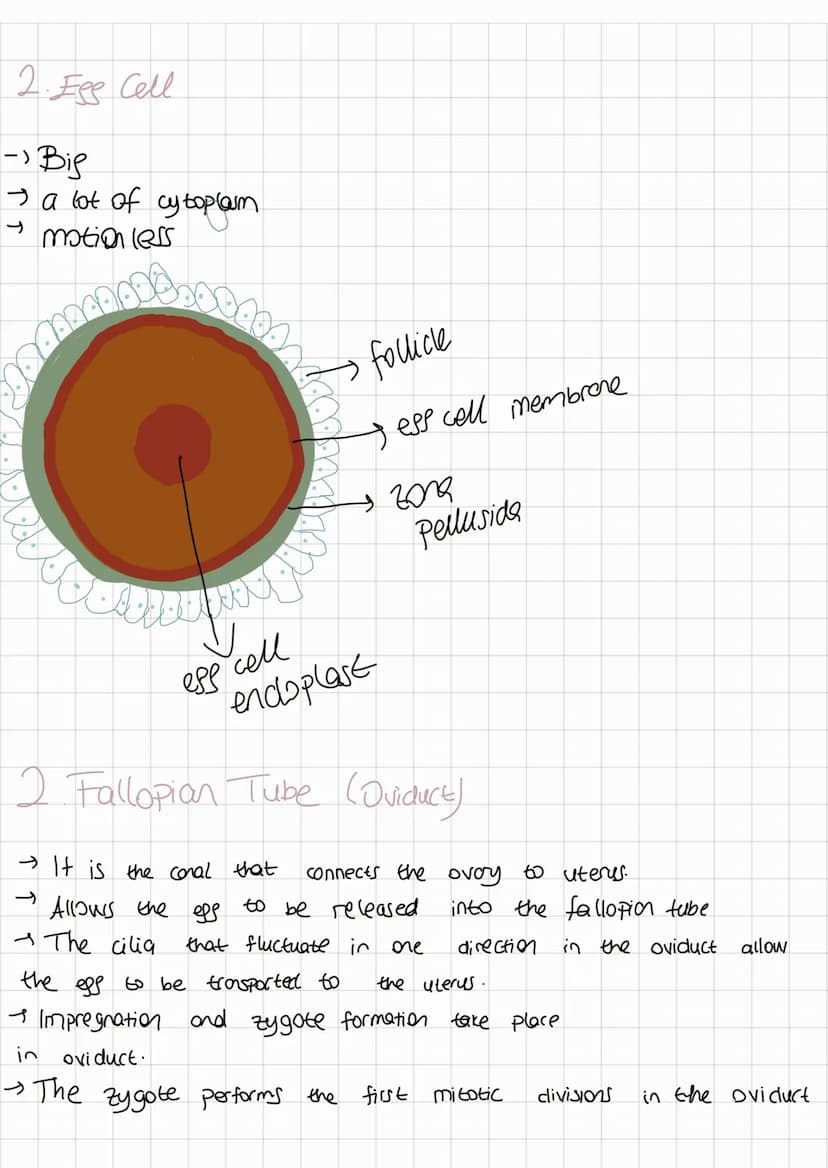 2. Egg Cell
-> Big
-> a lot of cytoplasm
-> motionless
-> follicle
-> egg cell membrane
-> zona
pellusida
egg cell
endoplast
2. Fallopian Tube (Oviduct)
-> It is the canal that connects the ovary to uterus.
-> Allows the egg to be released into the fallopion tube
-> The cilia that fluctuate in one direction in the oviduct allow
the egg to be transported to the uterus.
-> Impregnation and zygote formation take place
in oviduct.
-> The zygote performs the first mitotic divisions in the oviduct